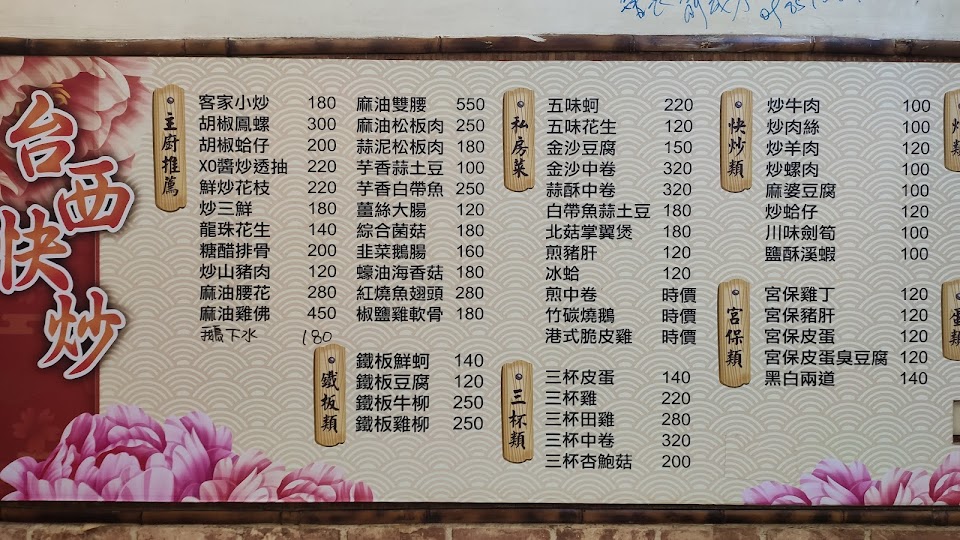 台西快炒
主廚推薦
客家小炒 180
胡椒鳳螺 300
胡椒蛤仔 200
XO醬炒透抽 220
鮮炒花枝 220
炒三鮮 180
龍珠花生 140
糖醋排骨 200
炒山豬肉 120
麻油腰花 280
麻油雞佛 450
下水 180
麻油雙腰 550
麻油松板肉 250
蒜泥松板肉 180
芋香蒜土豆 100
芋香白帶魚 250
薑絲大腸 120
綜合菌菇 180
韭菜鵝腸 160
蠔油海香菇 180
紅燒魚翅頭 280
椒鹽雞軟骨 180
鐵板類
鐵板鮮蚵 140
鐵板豆腐 120
鐵板牛柳 250
鐵板雞柳 250
私房菜
五味蚵 220
五味花生 120
金沙豆腐 150
金沙中卷 320
蒜酥中卷 320
白帶魚蒜土豆 180
北菇掌翼煲 180
煎豬肝 120
冰蛤 120
煎中卷 時價
竹碳燒鵝 時價
港式脆皮雞 時價
三杯類
三杯皮蛋 140
三杯雞 220
三杯田雞 280
三杯中卷 320
三杯杏鮑菇 200
快炒類
炒牛肉 100
炒肉絲 100
炒羊肉 120
炒螺肉 100
麻婆豆腐 100
炒蛤仔 120
川味劍筍 100
鹽酥溪蝦 100
宮保類
宮保雞丁 120
宮保豬肝 120
宮保皮蛋 120
宮保皮蛋臭豆腐 120
黑白兩道 140